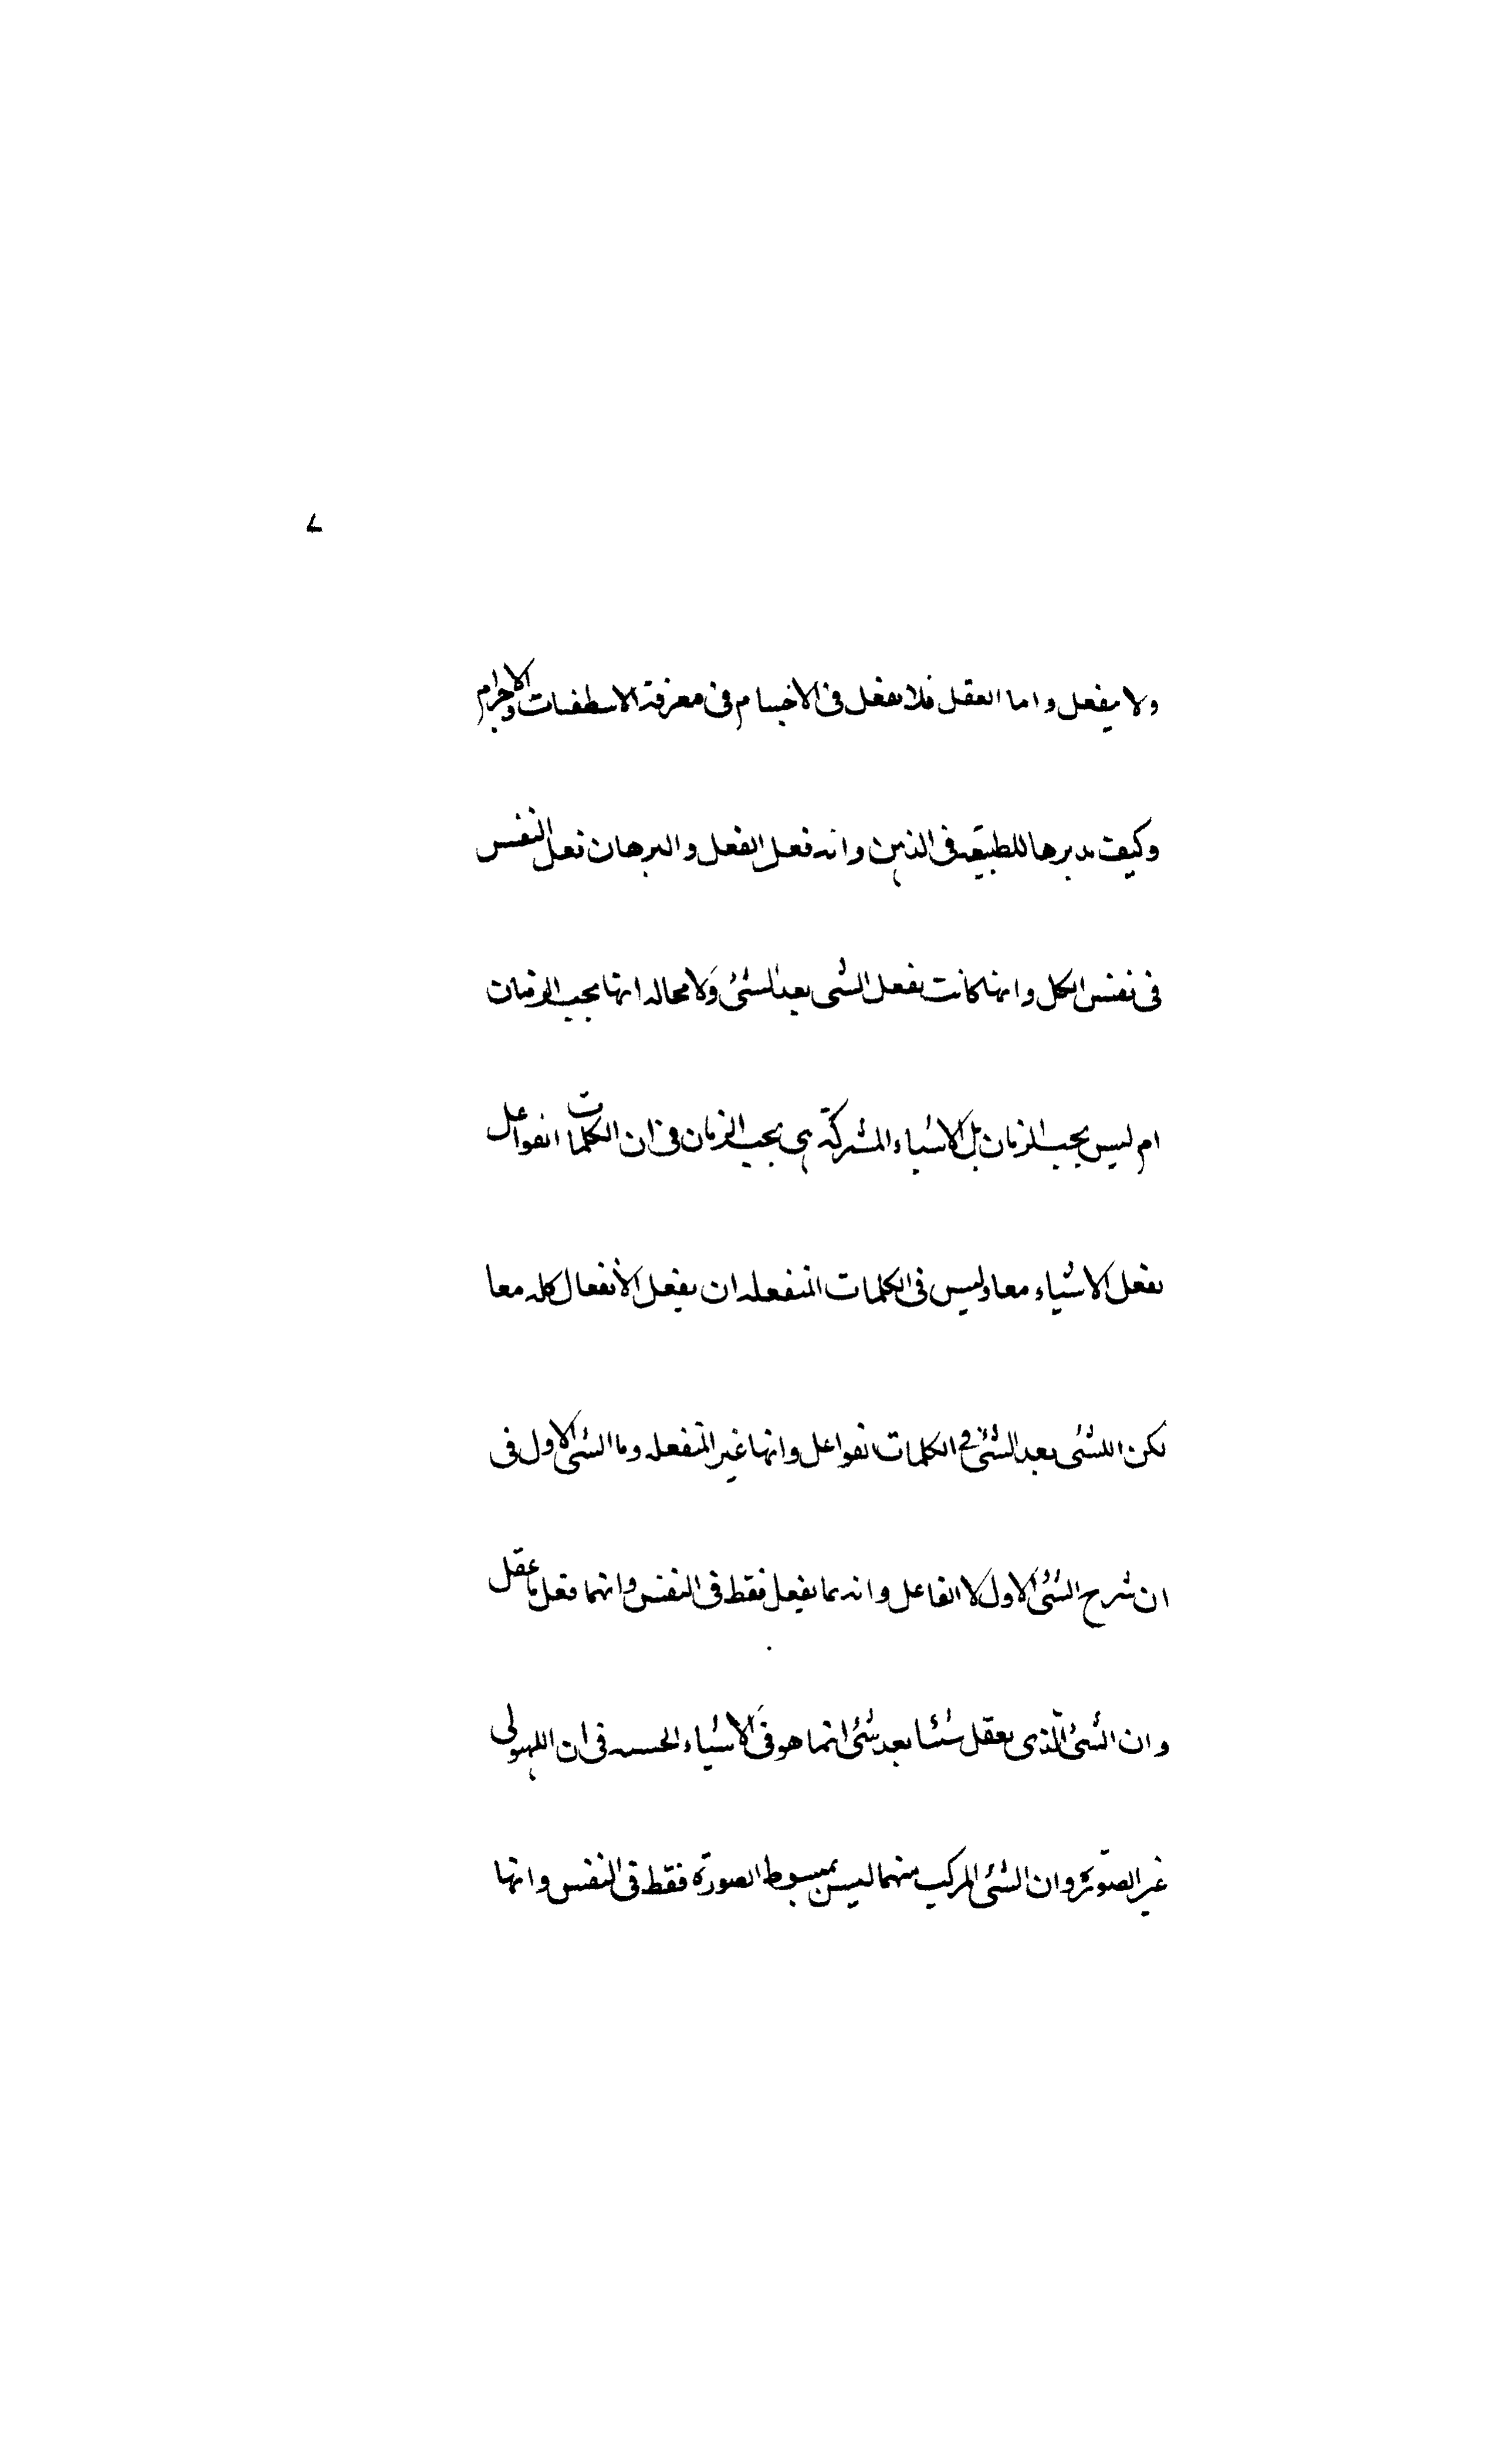 ولا يفعل واما العقل فلا يفعل في الاجسام في معرفة الاسطقسات والاجرام
وكيف يدبرها للطبيعه في الذهن وانه فعل الفعل والبرهان فعل النفس
في نفس الكل وانها كانت يفعل الشي بعد الشئ ولا محاله انها يجب الزمان
ام ليس يجب الزمان بل الاشياء المشركة هي يجب الزمان في ان الكلمات الفواعل
يفعل الاشياء معا وليس في الكلمات المنفعله ان يفعل الأنفعال كله معا
لكن الشئ بعد الشئ في الكلمات الفواعل وانها غير المنفعله وما الشئ الاول في
ان شرح الشئ الاول لا الفاعل وانه انما يفعل فقط في النفس وانها فعل ما عقل
وان الشئ الذى يعقل شئا بعد شئ انما هو في الاشياء الحسيه في ان الهيولى
غير الصورة وان الشئ المركب منهما ليس بمبسوط الصورة فقط في النفس وانها